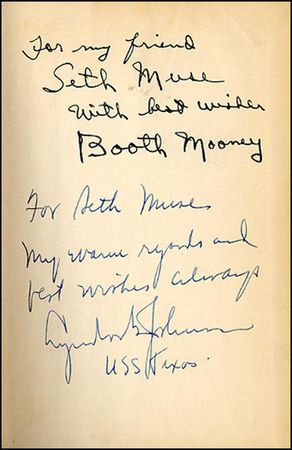 For my friend
Seth Muse
With best wishes
Booth Mooney
For Seth Muse
My warm regards and
best wishes always
Lyndon B Johnson
USS Texas.